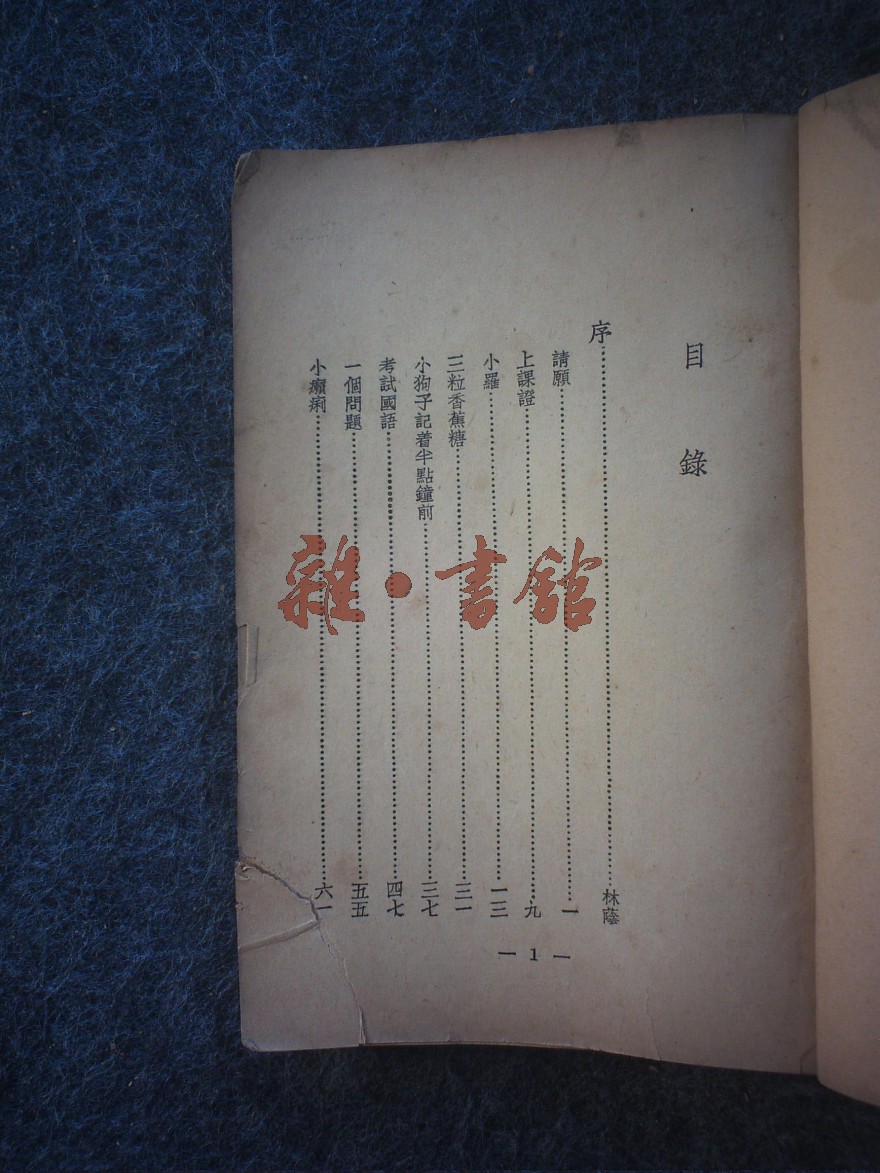 目錄
序……林蔭
請願……一
上課證……九
小羅……一三
三粒香蕉糖……三一
小狗子記着半點鐘前……三七
考試國語……四七
一個問題……五五
小癩痢……六一
— 1 —
雜·書館